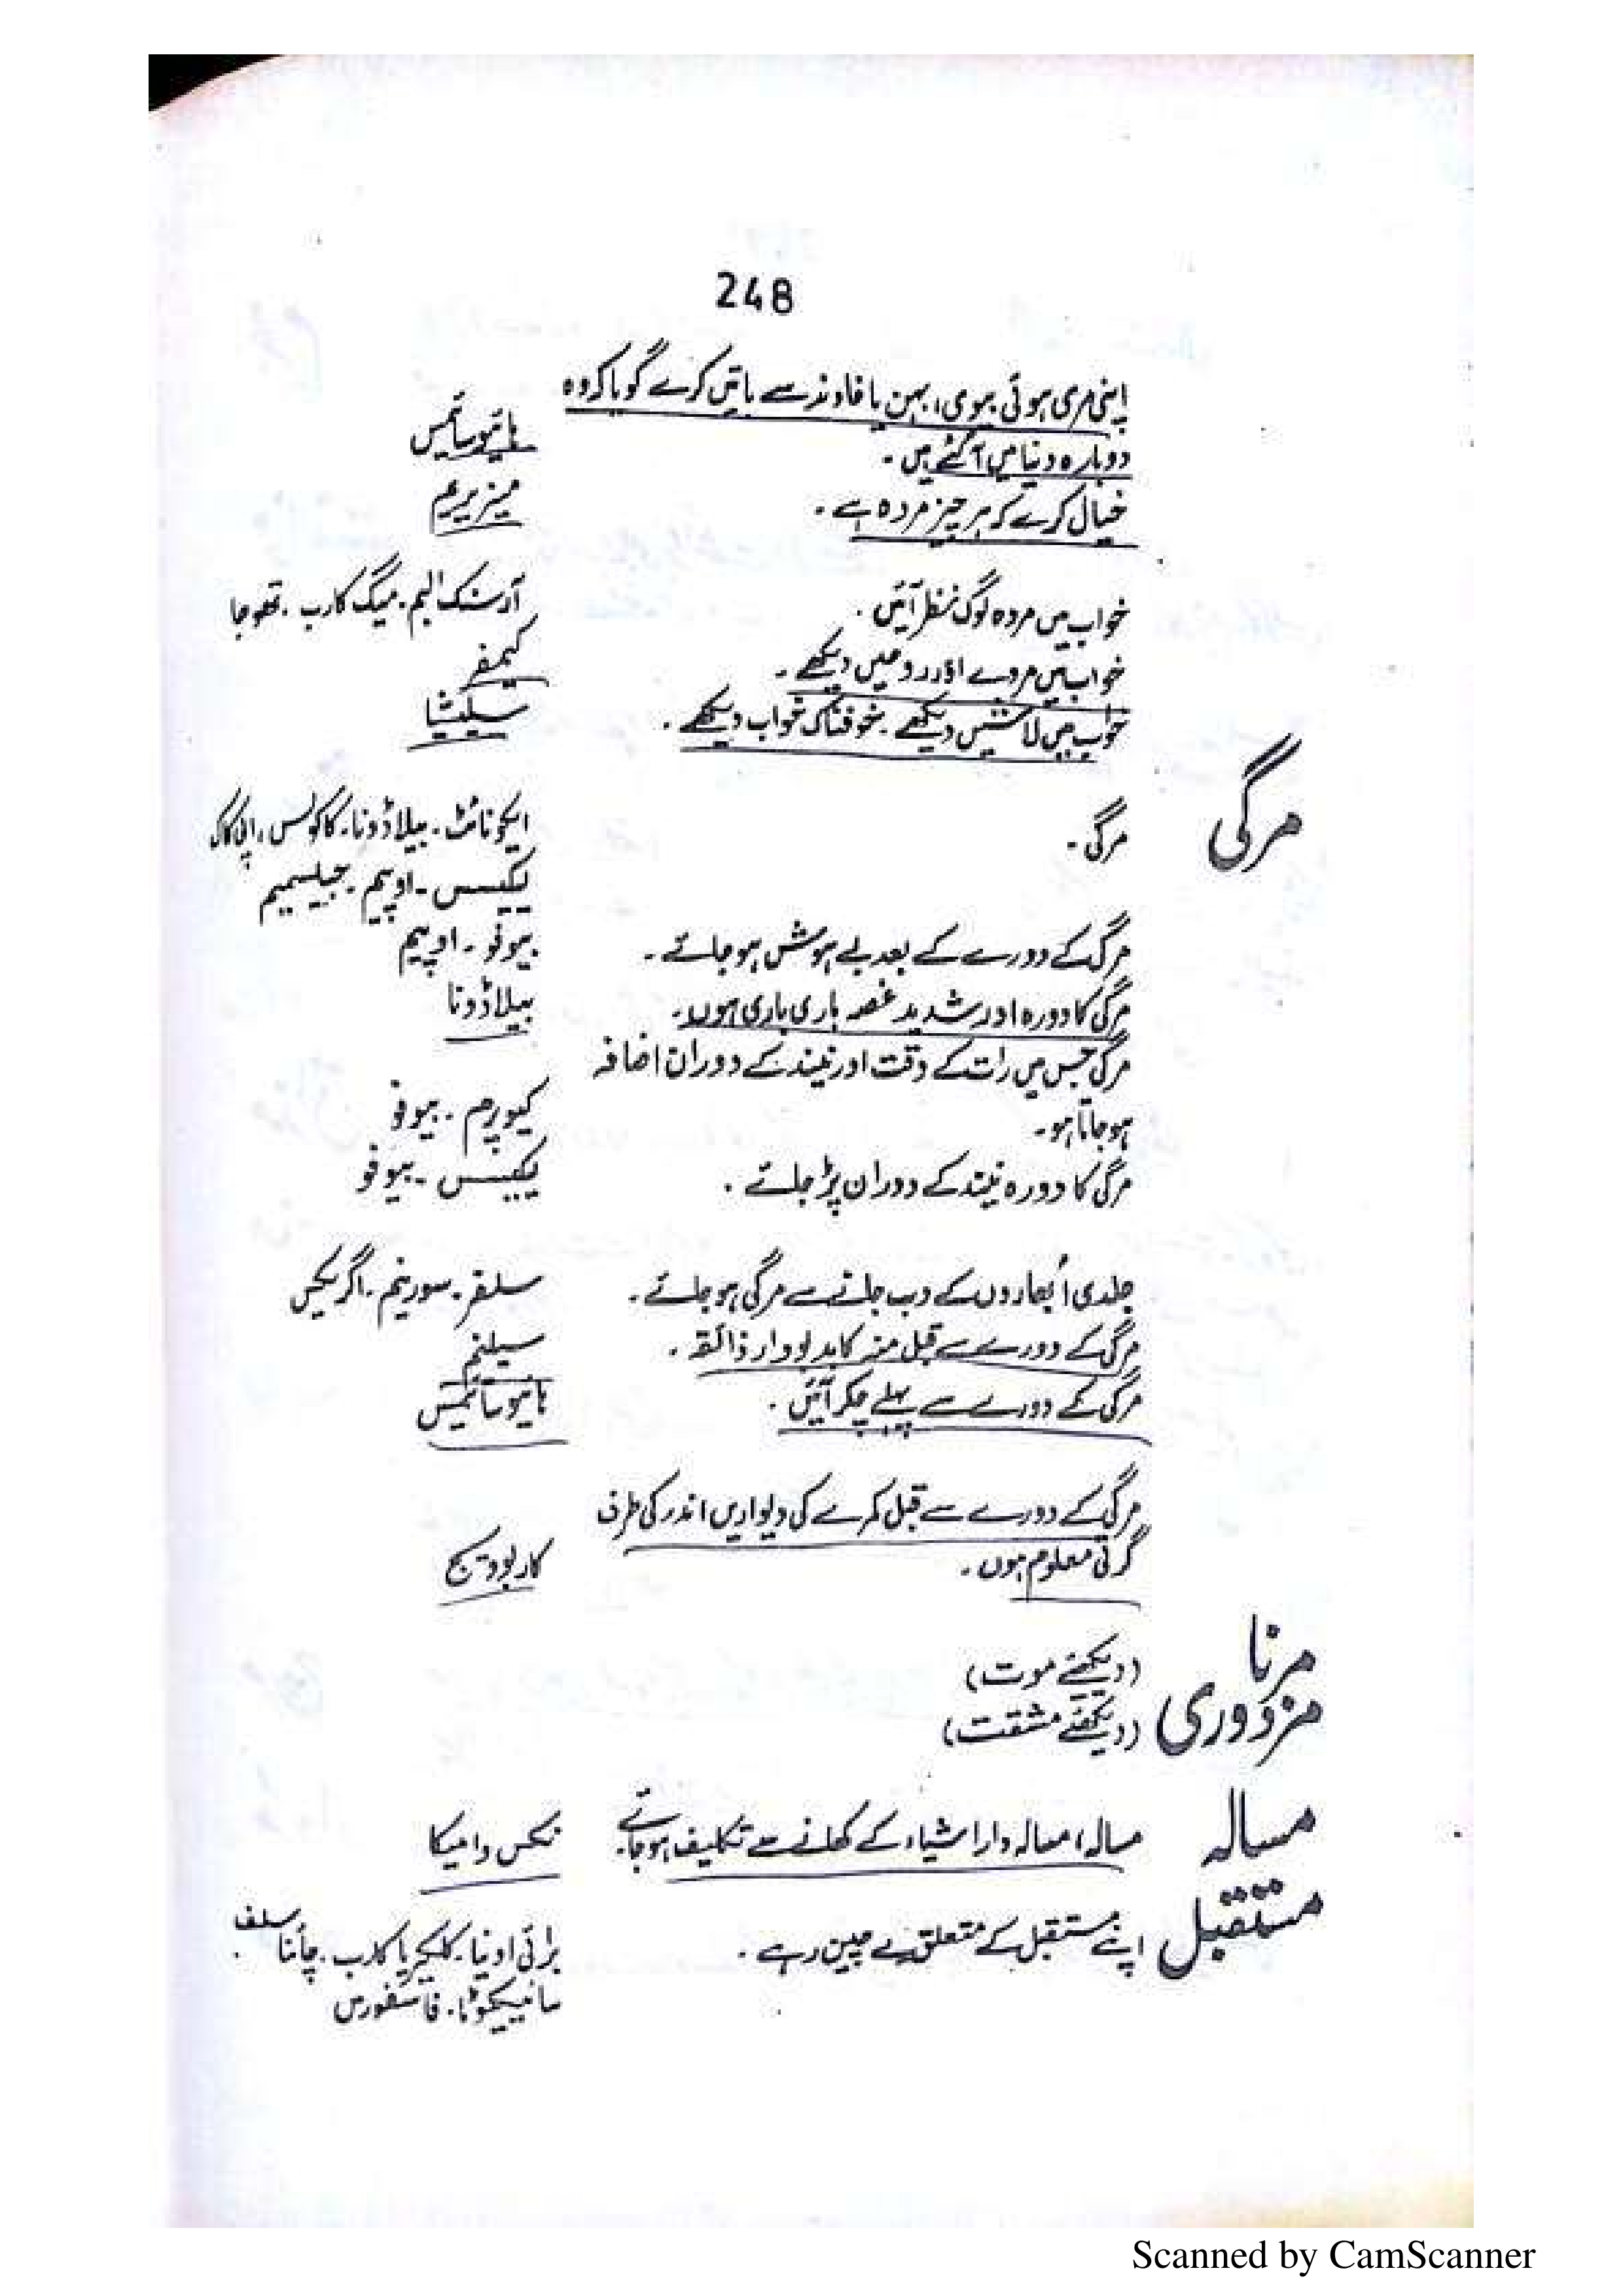 248
اپنی مری ہوئی بیوی، بہن یا خاوند سے باتیں کرے گویا کہ وہ
دوبارہ دنیا میں آ گئے ہیں۔ ہائیوسائمس
خیال کرے کہ ہر چیز مردہ ہے۔ میزیریم
خواب میں مردہ لوگ نظر آئیں۔ آرسنک البم۔ میگ کارب۔ تھوجا
خواب میں مردے اور روحیں دیکھے۔ کیمفر
خواب میں لاشیں دیکھے۔ خوفناک خواب دیکھے۔ سلیشیا
مرگی مرگی۔ ایکونائٹ۔ بیلاڈونا۔ کاکولس، اپی کاک
لیکیسس۔ اوپیم۔ جیلسیمیم
مرگی کے دورے کے بعد بے ہوش ہو جائے۔ بیوفو۔ اوپیم
مرگی کا دورہ اور شدید غصہ باری باری ہوں۔ بیلاڈونا
مرگی جس میں رات کے وقت اور نیند کے دوران اضافہ
ہو جاتا ہو۔ کیوپرم۔ بیوفو
مرگی کا دورہ نیند کے دوران پڑ جائے۔ لیکیسس۔ بیوفو
جلدی اُبھاروں کے دب جانے سے مرگی ہو جائے۔ سلفر۔ سورینم۔ اگریکس
مرگی کے دورے سے قبل منہ کا بدبودار ذائقہ۔ سیلنیم
مرگی کے دورے سے پہلے چکر آئیں۔ ہائیوسائمیس
مرگی کے دورے سے قبل کمرے کی دیواریں اندر کی طرف
گرتی معلوم ہوں۔ کاربوویج
مرنا (دیکھئے موت)
مزدوری (دیکھئے مشقت)
مسالہ مسالہ، مسالہ دار اشیاء کے کھانے سے تکلیف ہو جائے۔ نکس وامیکا
مستقبل اپنے مستقبل کے متعلق بے چین رہے۔ برائی اونیا۔ کلکیریا کارب۔ چائنا سلف
سائیکوٹا۔ فاسفورس
Scanned by CamScanner